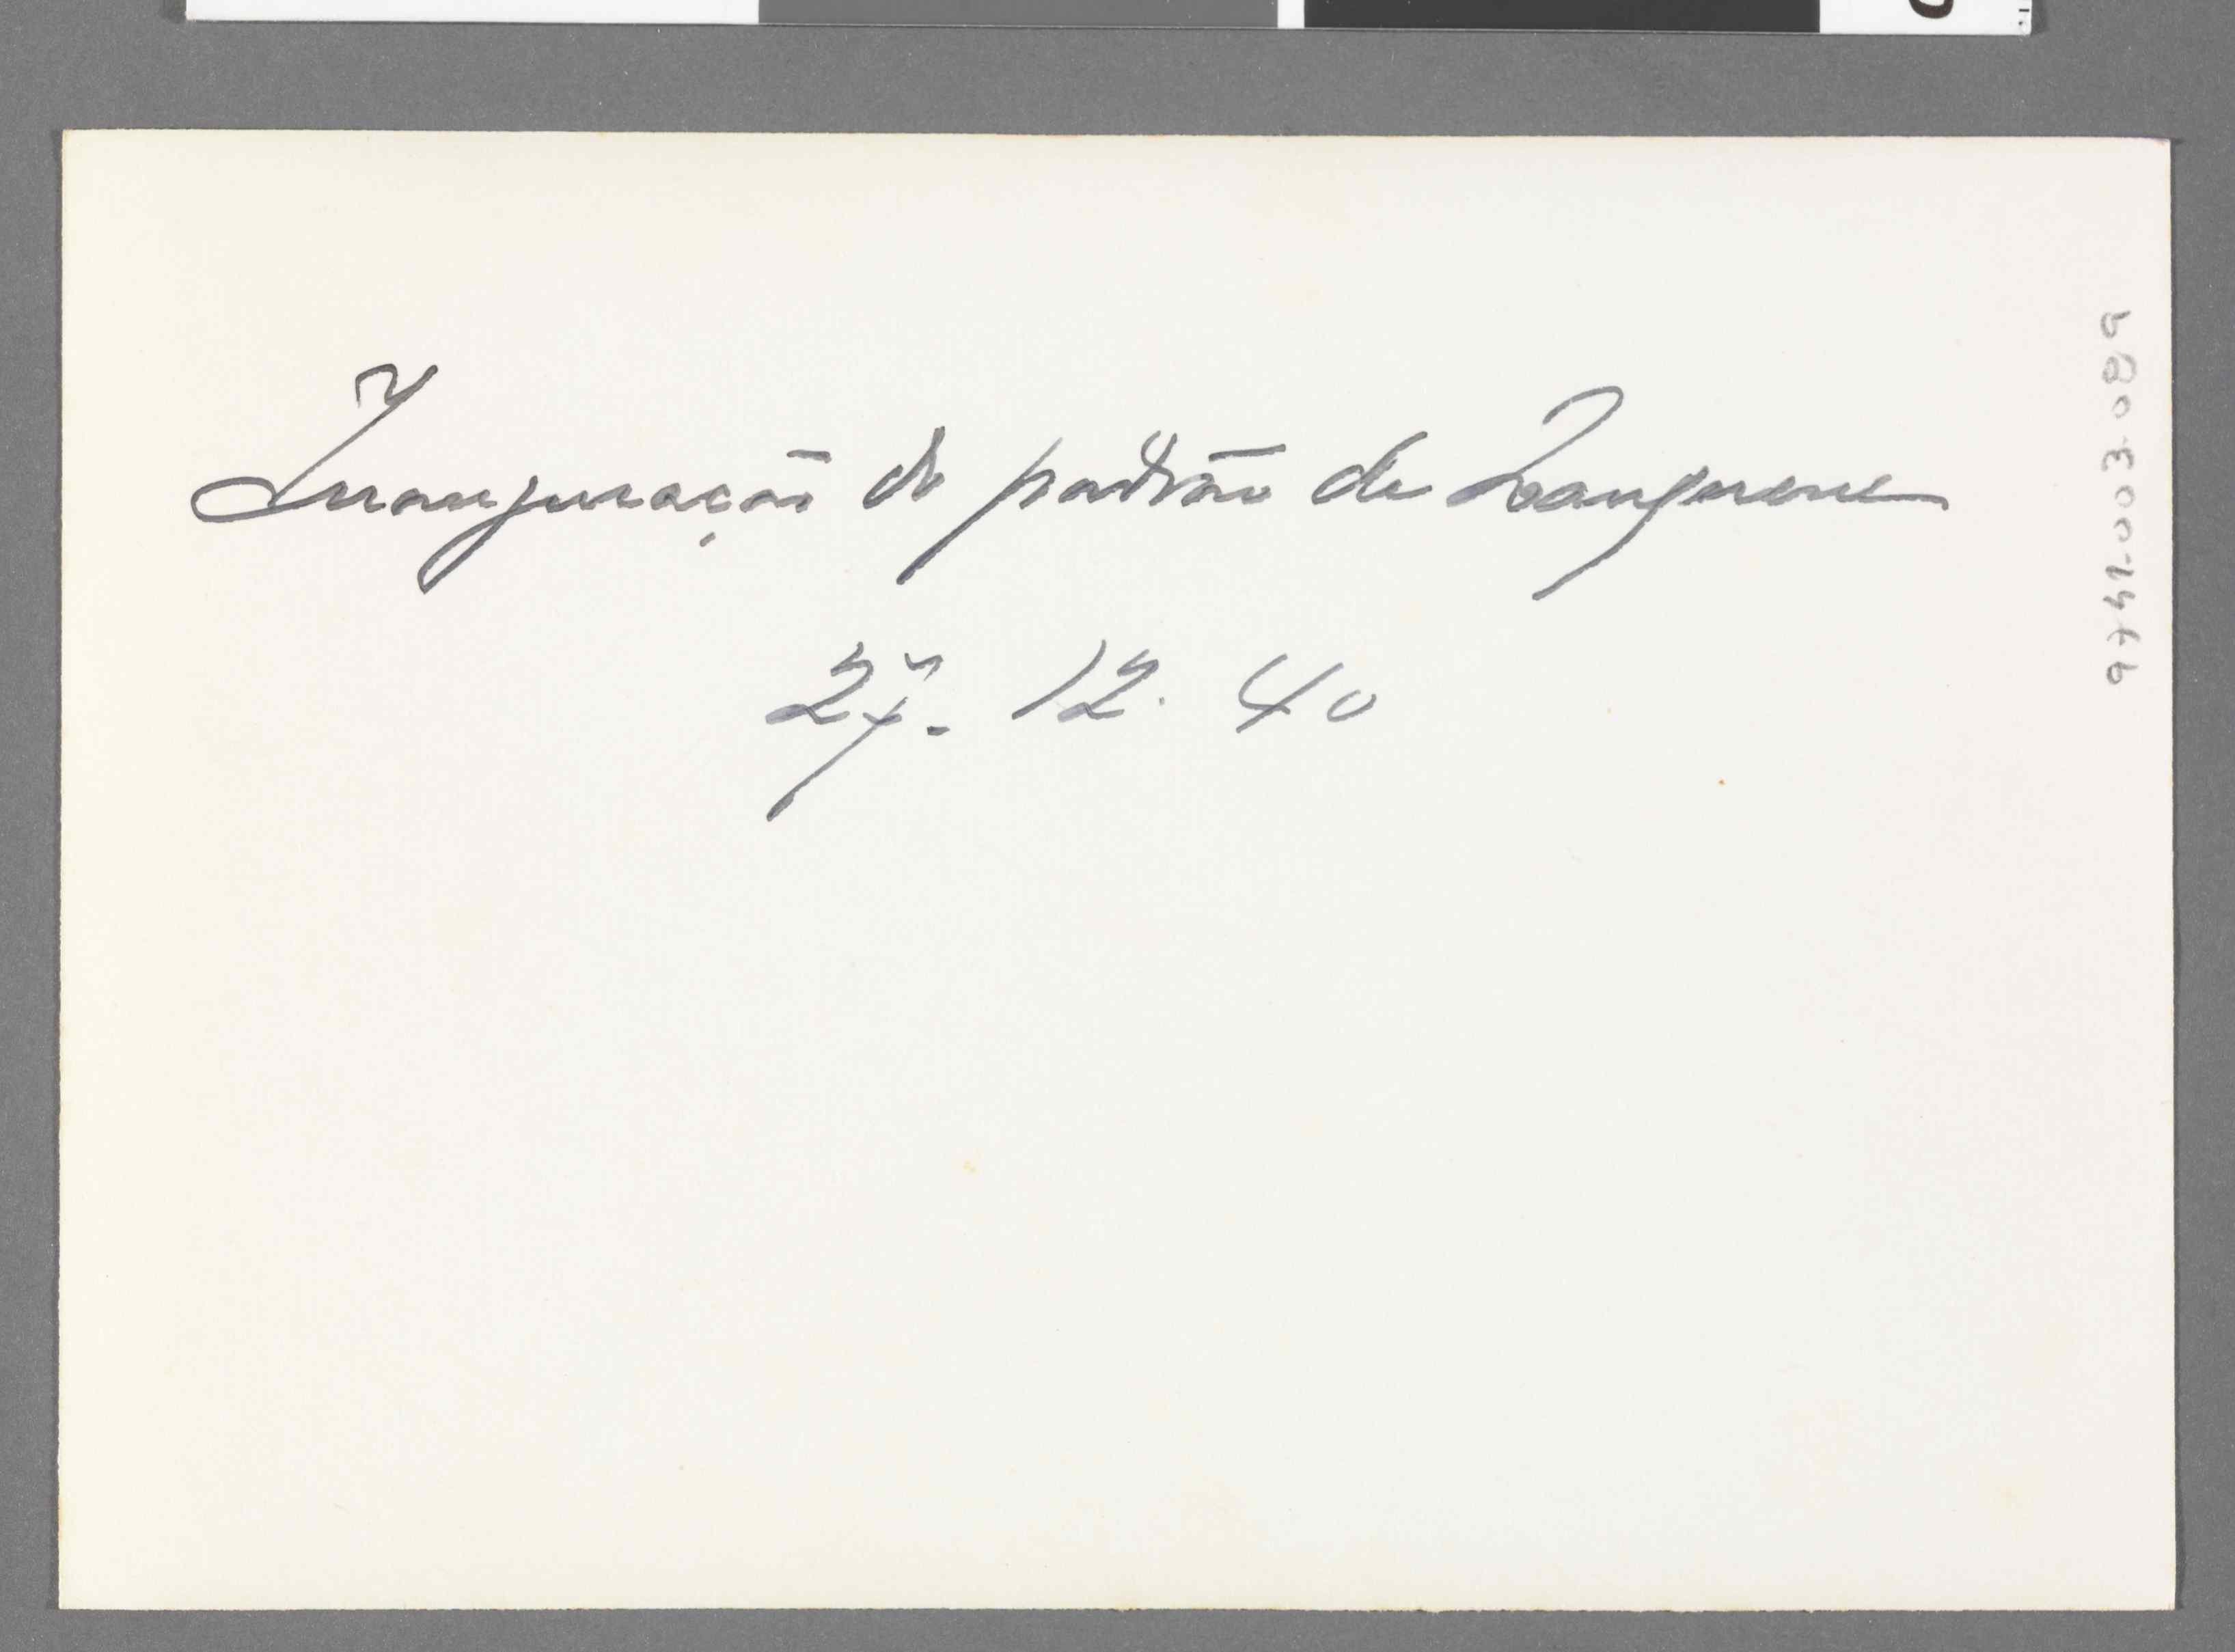 Inauguração do padrão de Zanguene
27. 12. 40
9741-003-089